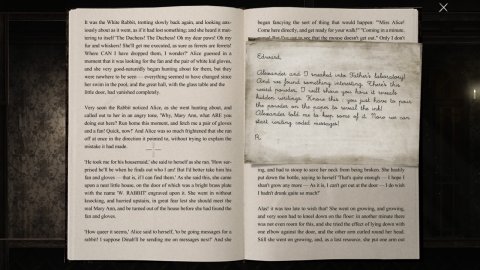 It was the White Rabbit, trotting slowly back again, and looking anx-
iously about as it went, as if it had lost something; and she heard it mut-
tering to itself 'The Duchess! The Duchess! Oh my dear paws! Oh my
fur and whiskers! She'll get me executed, as sure as ferrets are ferrets!
Where CAN I have dropped them, I wonder?' Alice guessed in a
moment that it was looking for the fan and the pair of white kid gloves,
and she very good-naturedly began hunting about for them, but they
were nowhere to be seen — everything seemed to have changed since
her swim in the pool, and the great hall, with the glass table and the
little door, had vanished completely.
Very soon the Rabbit noticed Alice, as she went hunting about, and
called out to her in an angry tone, 'Why, Mary Ann, what ARE you
doing out here? Run home this moment, and fetch me a pair of gloves
and a fan! Quick, now!' And Alice was so much frightened that she ran
off at once in the direction it pointed to, without trying to explain the
mistake it had made.
'He took me for his housemaid,' she said to herself as she ran. 'How sur-
prised he'll be when he finds out who I am! But I'd better take him his
fan and gloves — that is, if I can find them.' As she said this, she came
upon a neat little house, on the door of which was a bright brass plate
with the name 'W. RABBIT' engraved upon it. She went in without
knocking, and hurried upstairs, in great fear lest she should meet the
real Mary Ann, and be turned out of the house before she had found the
fan and gloves.
'How queer it seems,' Alice said to herself, 'to be going messages for a
rabbit! I suppose Dinah'll be sending me on messages next!' And she
began fancying the sort of thing that would happen: '"Miss Alice!
Come here directly, and get ready for your walk!" "Coming in a minute,
Edward,
Alexander and I sneaked into Father's laboratory!
And we found something interesting. There's this
weird powder, I will show you how it reveals
hidden writings. Know this : you just have to pour
the powder on the paper to reveal the ink!
Alexander told me to keep some of it. Now we can
start writing coded messages!
ing, and had to stoop to save her neck from being broken. She hastily
put down the bottle, saying to herself 'That's quite enough — I hope I
shan't grow any more — As it is, I can't get out at the door — I do wish
I hadn't drunk quite so much!'
Alas! it was too late to wish that! She went on growing, and growing,
and very soon had to kneel down on the floor: in another minute there
was not even room for this, and she tried the effect of lying down with
one elbow against the door, and the other arm curled round her head.
Still she went on growing, and, as a last resource, she put one arm out